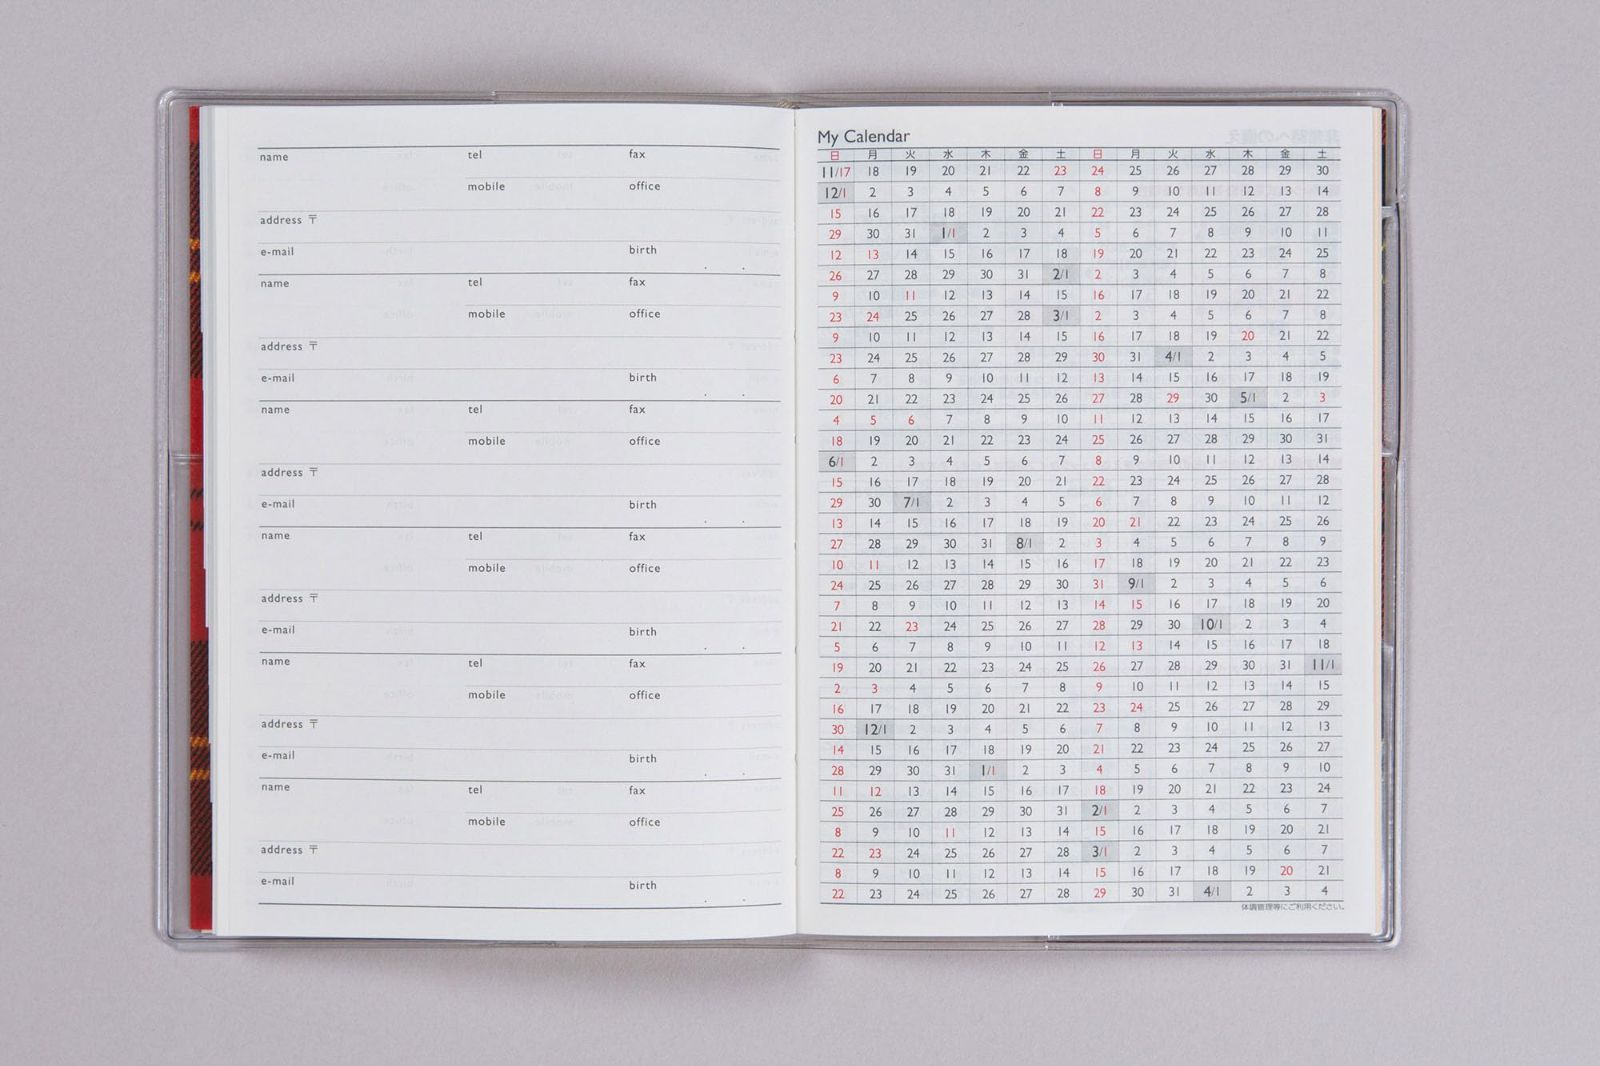 name tel fax
mobile office
address 〒
e-mail birth
. .
name tel fax
mobile office
address 〒
e-mail birth
. .
name tel fax
mobile office
address 〒
e-mail birth
. .
name tel fax
mobile office
address 〒
e-mail birth
. .
name tel fax
mobile office
address 〒
e-mail birth
. .
name tel fax
mobile office
address 〒
e-mail birth
. .
My Calendar
日 月 火 水 木 金 土 日 月 火 水 木 金 土
11/17 18 19 20 21 22 23 24 25 26 27 28 29 30
12/1 2 3 4 5 6 7 8 9 10 11 12 13 14
15 16 17 18 19 20 21 22 23 24 25 26 27 28
29 30 31 1/1 2 3 4 5 6 7 8 9 10 11
12 13 14 15 16 17 18 19 20 21 22 23 24 25
26 27 28 29 30 31 2/1 2 3 4 5 6 7 8
9 10 11 12 13 14 15 16 17 18 19 20 21 22
23 24 25 26 27 28 3/1 2 3 4 5 6 7 8
9 10 11 12 13 14 15 16 17 18 19 20 21 22
23 24 25 26 27 28 29 30 31 4/1 2 3 4 5
6 7 8 9 10 11 12 13 14 15 16 17 18 19
20 21 22 23 24 25 26 27 28 29 30 5/1 2 3
4 5 6 7 8 9 10 11 12 13 14 15 16 17
18 19 20 21 22 23 24 25 26 27 28 29 30 31
6/1 2 3 4 5 6 7 8 9 10 11 12 13 14
15 16 17 18 19 20 21 22 23 24 25 26 27 28
29 30 7/1 2 3 4 5 6 7 8 9 10 11 12
13 14 15 16 17 18 19 20 21 22 23 24 25 26
27 28 29 30 31 8/1 2 3 4 5 6 7 8 9
10 11 12 13 14 15 16 17 18 19 20 21 22 23
24 25 26 27 28 29 30 31 9/1 2 3 4 5 6
7 8 9 10 11 12 13 14 15 16 17 18 19 20
21 22 23 24 25 26 27 28 29 30 10/1 2 3 4
5 6 7 8 9 10 11 12 13 14 15 16 17 18
19 20 21 22 23 24 25 26 27 28 29 30 31 11/1
2 3 4 5 6 7 8 9 10 11 12 13 14 15
16 17 18 19 20 21 22 23 24 25 26 27 28 29
30 12/1 2 3 4 5 6 7 8 9 10 11 12 13
14 15 16 17 18 19 20 21 22 23 24 25 26 27
28 29 30 31 1/1 2 3 4 5 6 7 8 9 10
11 12 13 14 15 16 17 18 19 20 21 22 23 24
25 26 27 28 29 30 31 2/1 2 3 4 5 6 7
8 9 10 11 12 13 14 15 16 17 18 19 20 21
22 23 24 25 26 27 28 3/1 2 3 4 5 6 7
8 9 10 11 12 13 14 15 16 17 18 19 20 21
22 23 24 25 26 27 28 29 30 31 4/1 2 3 4
体調管理等にご利用ください。